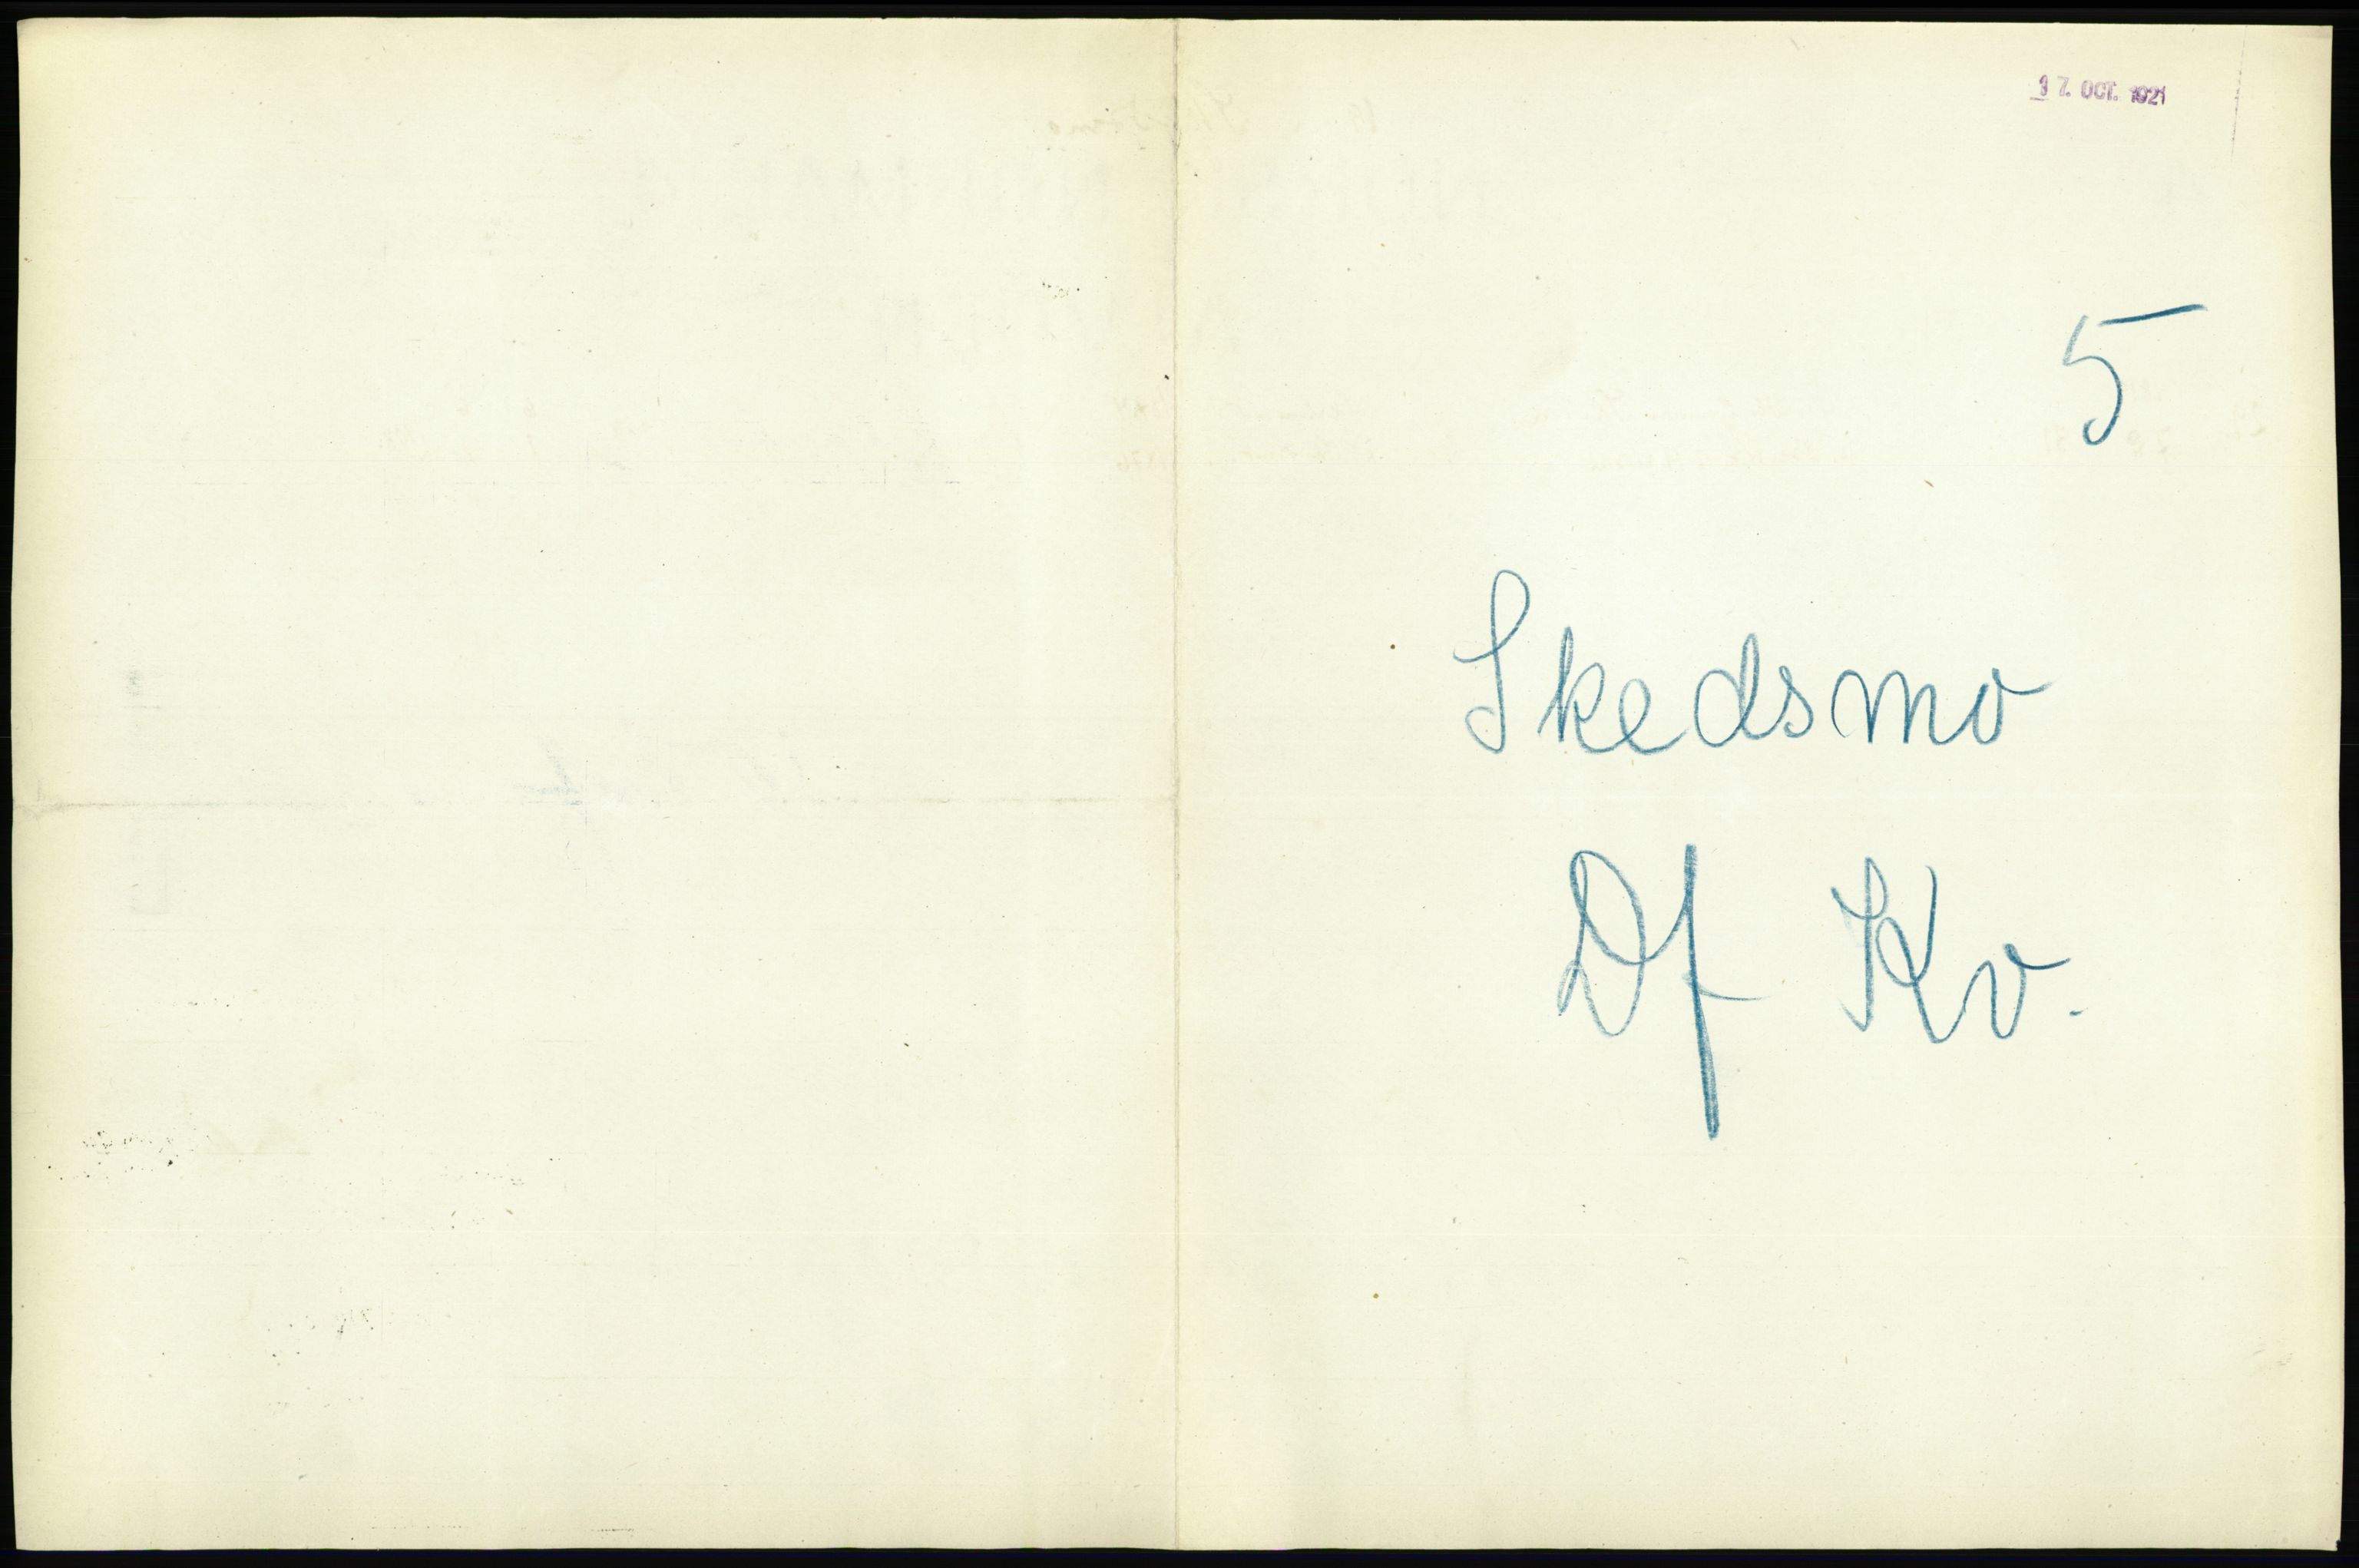 17. OCT. 1921
5
Skedsmo
Df Kv.